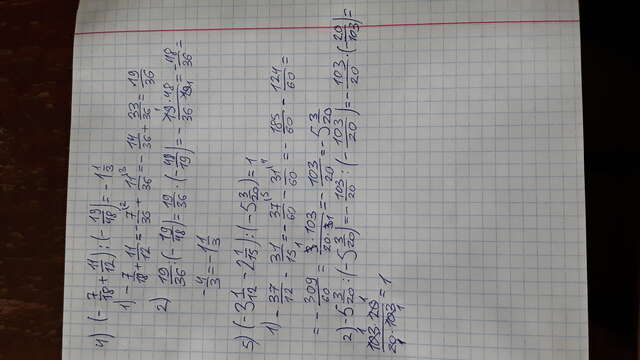 4) (-7/18 + 11/12) : (-19/48) = -1 1/3
1) -7/18 + 11/12 = -7/36 (2 + 11/36 (3 = -14/36 + 33/36 = 19/36
2) 19/36 : (-19/48) = 19/36 · (-48/19) = -19·48/36·19 = -48/36 =
-4/3 = -1 1/3
5) (-3 1/12 - 2 1/15) : (-5 3/20) = 1
1) -37/12 - 31/15 = -37/60 (5 - 31/60 (4 = -185/60 - 124/60 =
= -309/60 = 3·103/20·3 = -103/20 = -5 3/20
2) -5 3/20 : (-5 3/20) = -103/20 : (-103/20) = -103/20 · (-20/103) =
103·20/20·103 = 1